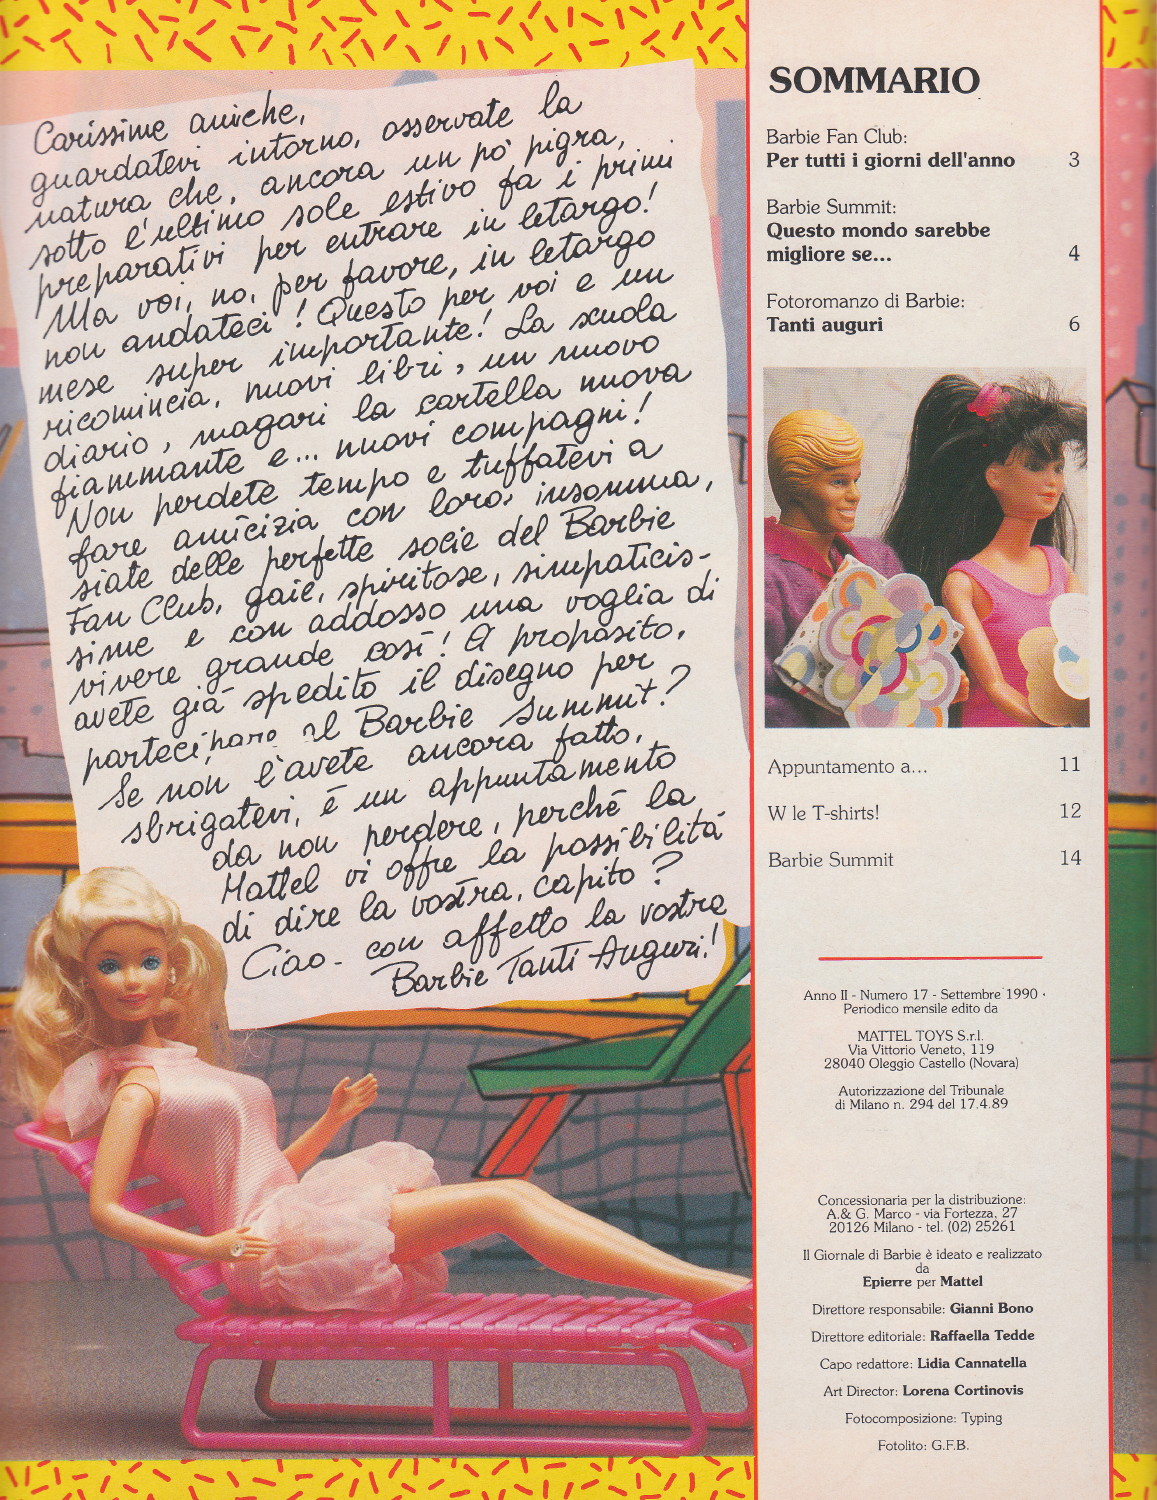 Carissime amiche,
guardatevi intorno, osservate la
natura che, ancora un pò pigra,
sotto l'ultimo sole estivo fa i primi
preparativi per entrare in letargo!
Ma voi, no, per favore, in letargo
non andateci! Questo per voi e un
mese super importante! La scuola
ricomincia, nuovi libri, un nuovo
diario, magari la cartella nuova
fiammante e... nuovi compagni!
Non perdete tempo e tuffatevi a
fare amicizia con loro: insomma,
siate delle perfette socie del Barbie
Fan Club, gaie, spiritose, simpaticis-
sime e con addosso una voglia di
vivere grande così! A proposito,
avete già spedito il disegno per
partecipare al Barbie Summit?
Se non l'avete ancora fatto,
sbrigatevi, è un appuntamento
da non perdere, perché la
Mattel vi offre la possibilità
di dire la vostra, capito?
Ciao - con affetto la vostra
Barbie Tanti Auguri!
SOMMARIO
Barbie Fan Club:
Per tutti i giorni dell'anno 3
Barbie Summit:
Questo mondo sarebbe
migliore se... 4
Fotoromanzo di Barbie:
Tanti auguri 6
Appuntamento a... 11
W le T-shirts! 12
Barbie Summit 14
Anno II - Numero 17 - Settembre 1990 ·
Periodico mensile edito da
MATTEL TOYS S.r.l.
Via Vittorio Veneto, 119
28040 Oleggio Castello (Novara)
Autorizzazione del Tribunale
di Milano n. 294 del 17.4.89
Concessionaria per la distribuzione:
A.& G. Marco - via Fortezza, 27
20126 Milano - tel. (02) 25261
Il Giornale di Barbie è ideato e realizzato
da
Epierre per Mattel
Direttore responsabile: Gianni Bono
Direttore editoriale: Raffaella Tedde
Capo redattore: Lidia Cannatella
Art Director: Lorena Cortinovis
Fotocomposizione: Typing
Fotolito: G.F.B.